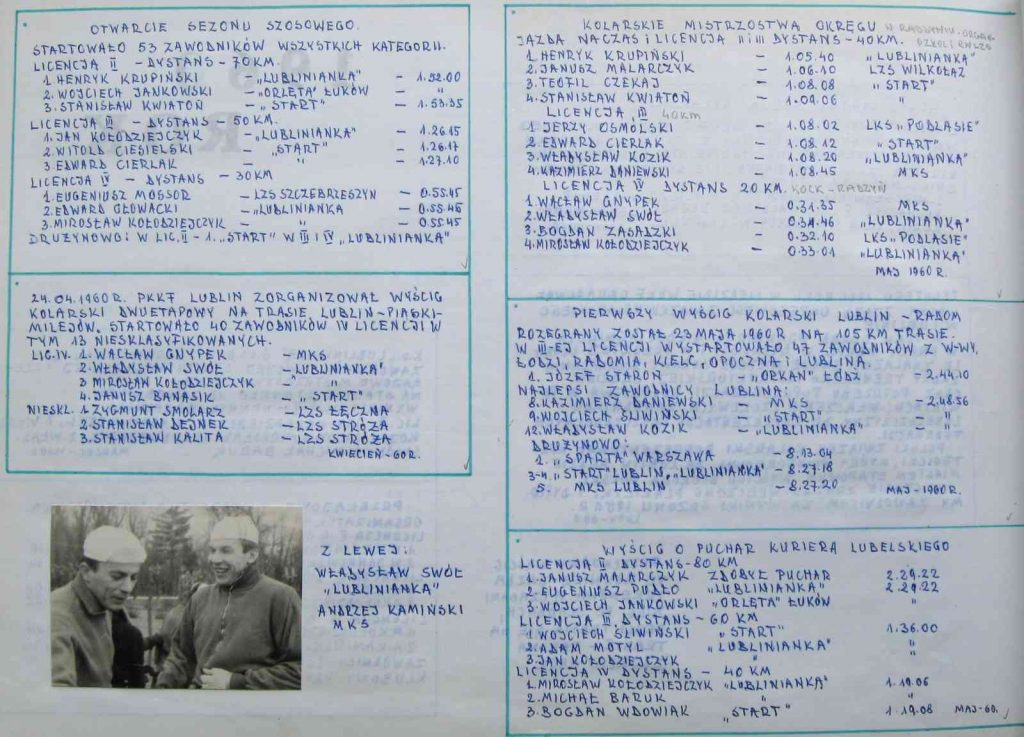 OTWARCIE SEZONU SZOSOWEGO.
STARTOWAŁO 53 ZAWODNIKÓW WSZYSTKICH KATEGORII.
LICENCJA II – DYSTANS – 70 KM.
1. HENRYK KRUPIŃSKI – „LUBLINIANKA" – 1.52.00
2. WOJCIECH JANKOWSKI – „ORLĘTA" ŁUKÓW – "
3. STANISŁAW KWIATOŃ – „START" – 1.53.35
LICENCJA III – DYSTANS – 50 KM.
1. JAN KOŁODZIEJCZYK – „LUBLINIANKA" – 1.26.15
2. WITOLD CIESIELSKI – „START" – 1.26.17
3. EDWARD CIERLAK – " – 1.27.10
LICENCJA IV – DYSTANS – 30 KM
1. EUGENIUSZ MOSSOR – LZS SZCZEBRZESZYN – 0.55.45
2. EDWARD GŁOWACKI – „LUBLINIANKA – 0.55.45
3. MIROSŁAW KOŁODZIEJCZYK – " – 0.55.45
DRUŻYNOWO: W LIC. II – 1. „START" W III I IV „LUBLINIANKA"
24.04.1960 R. PKKF LUBLIN ZORGANIZOWAŁ WYŚCIG
KOLARSKI DWUETAPOWY NA TRASIE LUBLIN-PIASKI-
MILEJÓW. STARTOWAŁO 40 ZAWODNIKÓW IV LICENCJI W
TYM 13 NIESKLASYFIKOWANYCH.
LIC. IV. 1. WACŁAW GNYPEK – MKS
2. WŁADYSŁAW SWÓŁ – LUBLINIANKA"
3 MIROSŁAW KOŁODZIEJCZYK – " "
4. JANUSZ BANASIK – „START"
NIESKL. 1 ZYGMUNT SMOLARZ – LZS ŁĘCZNA
2. STANISŁAW DEJNEK – LZS STRÓŻA
3. STANISŁAW KALITA – LZS STRÓŻA
KWIECIEŃ – 60 R.
Z LEWEJ:
WŁADYSŁAW SWÓŁ
„LUBLINIANKA"
ANDRZEJ KAMIŃSKI
MKS
KOLARSKIE MISTRZOSTWA OKRĘGU W RADZYNIU
JAZDA NA CZAS I LICENCJA II I III DYSTANS – 40 KM.
1. HENRYK KRUPIŃSKI – 1.05.40 „LUBLINIANKA"
2. JANUSZ MALARCZYK – 1.06.10 LZS WILKOŁAZ
3. TEOFIL CZEKAJ – 1.08.08 „START"
4. STANISŁAW KWIATOŃ – 1.09.06 "
LICENCJA III 40 KM
1 JERZY OSMÓLSKI – 1.08.02 LKS „PODLASIE"
2. EDWARD CIERLAK – 1.08.12 „START"
3. WŁADYSŁAW KOZIK – 1.08.20 „LUBLINIANKA"
4. KAZIMIERZ DANIEWSKI – 1.08.45 MKS
LICENCJA IV DYSTANS 20 KM. KOCK – RADZYŃ
1. WACŁAW GNYPEK – 0.31.35 MKS
2. WŁADYSŁAW SWÓŁ – 0.31.46 „LUBLINIANKA"
3. BOGDAN ZASADZKI – 0.32.10 LKS „PODLASIE"
4. MIROSŁAW KOŁODZIEJCZYK – 0.33.01 „LUBLINIANKA"
MAJ 1960 R.
PIERWSZY WYŚCIG KOLARSKI LUBLIN – RADOM
ROZEGRANY ZOSTAŁ 23 MAJA 1960 R. NA 105 KM TRASIE.
W III-EJ LICENCJI WYSTARTOWAŁO 47 ZAWODNIKÓW Z W-WY,
ŁODZI, RADOMIA, KIELC, OPOCZNA I LUBLINA.
1. JÓZEF STAROŃ – „ORKAN" ŁÓDŹ – 2.44.10
NAJLEPSI ZAWODNICY LUBLINA:
8. KAZIMIERZ DANIEWSKI – MKS – 2.48.56
9. WOJCIECH ŚLIWIŃSKI – „START" – "
12. WŁADYSŁAW KOZIK – „LUBLINIANKA" – "
DRUŻYNOWO:
1. „SPARTA" WARSZAWA – 8.13.04
3-4. „START" LUBLIN, „LUBLINIANKA" – 8.27.18
5. MKS LUBLIN – 8.27.20
MAJ – 1960 R.
WYŚCIG O PUCHAR KURIERA LUBELSKIEGO
LICENCJA II DYSTANS – 80 KM
1. JANUSZ MALARCZYK ZDOBYŁ PUCHAR 2.29.22
2. EUGENIUSZ PUDŁO „LUBLINIANKA" 2.29.22
3. WOJCIECH JANKOWSKI „ORLĘTA" ŁUKÓW "
LICENCJA III. DYSTANS – 60 KM
1. WOJCIECH ŚLIWIŃSKI „START" 1.36.00
2. ADAM MOTYL „LUBLINIANKA" "
3. JAN KOŁODZIEJCZYK " "
LICENCJA IV DYSTANS – 40 KM
1. MIROSŁAW KOŁODZIEJCZYK „LUBLINIANKA" 1.19.06
2. MICHAŁ BARUK " "
3. BOGDAN WDOWIAK „START" 1.19.08 MAJ – 60.